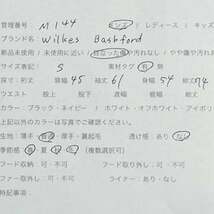 管理番号 M144 メンズ / レディース / キッズ
ブランド名 Wilkes Bashford
新品未使用 / 未使用に近い / 目立った傷や汚れなし / やや傷や汚れ
サイズ表記 / S 素材タグ 有・無
採寸：裄丈 / 肩幅 45 袖丈 61 身幅 54 総丈 74
ウエスト 股上 股下 / ヒップ 裾幅
カラー：ブラック・ネイビー / ホワイト・オフホワイト・アイボリ
/ 以外のカラーは写真で確認
生地：薄手・普通・厚手・裏起毛 透け感：あり・なし
季節感：春・夏・秋・冬 (複数選択可)
フード収納：可・不可 フード取り外し：可・不可
ファー取外し：可・不可 ライナー：あり・なし
特記事項：